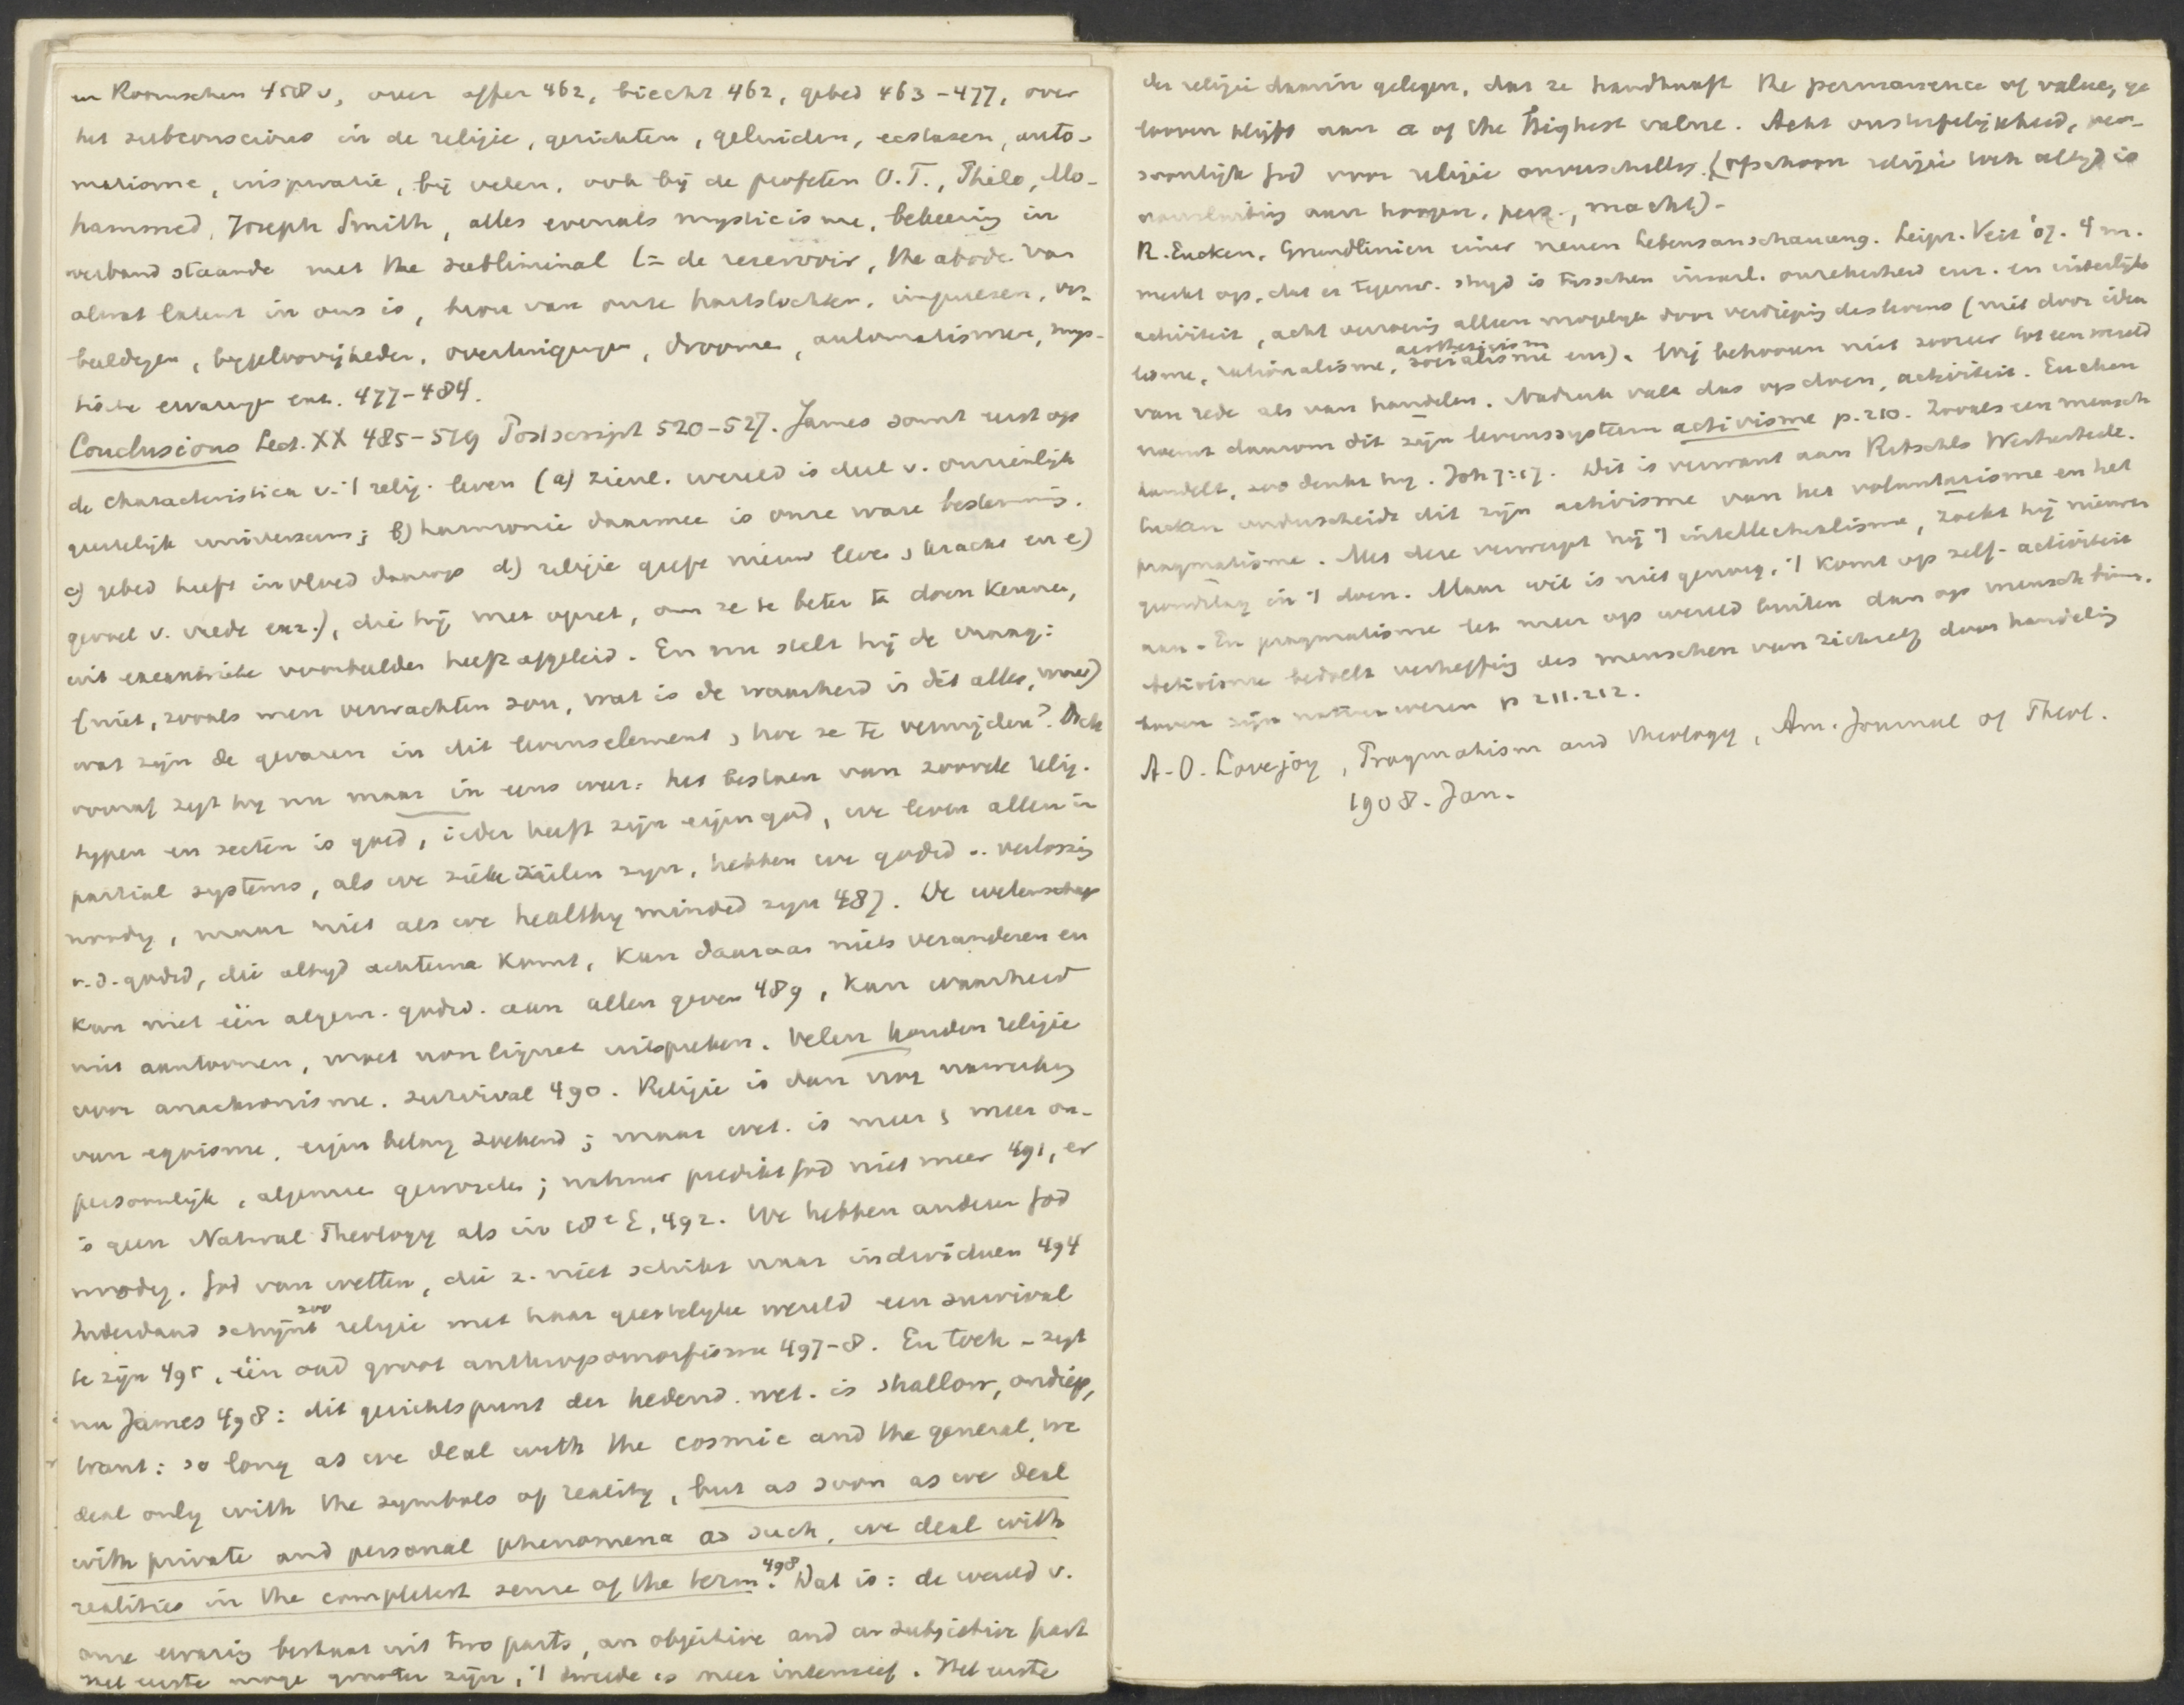 en Roomschen 458 v, over offer 462, biecht 462, gebed 463-477, over
het subconscious in de religie, gezichten, geluiden, ecstasen, auto-
matisme, inspiratie, bij velen, ook bij de profeten O.T., Philo, Mo-
hammed, Joseph Smith, alles evenals mysticisme, bekeering in
verband staande met the subliminal (= de reservoir, the abode van
alwat latent in ons is, bron van onze hartstochten, impulsen, ver-
beeldingen, bijgeloovigheden, overtuigingen, droomen, automatismen, mys-
tische ervaringen enz. 477-484.
Conclusions Lect. XX 485-519 Postscript 520-527. James somt eerst op
de characteristica v. 't relig. leven (a) zienl. wereld is deel v. onzienlijk
geestelijk universum; b) harmonie daarmee is onze ware bestemming.
c) gebed heeft invloed daarop d) religie geeft nieuw leven, kracht en e)
gevoel v. vrede enz.), die hij met opzet, om ze te beter te doen kennen,
uit excentrieke voorbeelden heeft afgeleid. En nu stelt hij de vraag:
(niet, zooals men verwachten zou, wat is de waarheid in dit alles,
wat zijn de gevaren in dit levenselement, hoe ze te vermijden? Doch
vooraf zegt hij nu maar in eens weer: het bestaan van zoovele relig.
typen en secten is goed, ieder heeft zijn eigen god, we leven allen in
partial systems, als we zieke zielen zijn, hebben we godsd. v. verlossing
noodig, maar niet als we healthy minded zijn 487. De wetenschap
v. d. godsd, die altijd achterna komt, kan daaraan niets veranderen en
kan niet één algem. godsd. aan allen geven 489, kan waarheid
niet aantoonen, moet non liquet uitspreken. Velen houden religie
voor anachronisme. survival 490. Religie is dan nog nawerking
van egoisme, eigen belang zoekend; maar wet. is meer, meer on-
persoonlijk, algemeen geworden; natuur predikt God niet meer 491, er
is geen Natural Theology als in 18e E, 492. We hebben anderen God
noodig. God van wetten, die z. niet schikt naar individuen 494
Inderdaad schijnt zoo religie met haar geestelijke wereld een survival
te zijn 495, één oud groot anthropomorfisme 497-8. En toch – zegt
nu James 498: dit gezichtspunt der hedend. wet. is shallow, ondiep,
want: so long as we deal with the cosmic and the general, we
deal only with the symbols of reality, but as soon as we deal
with private and personal phenomena as such, we deal with
realities in the completest sense of the term. 498 Dat is: de wereld v.
onze ervaring bestaat uit two parts, an objective and a subjective part
Het eerste moge grooter zijn, 't tweede is meer intensief. Het eerste
der religie daarin gelegen, dat ze handhaaft the permanence of value, ge
looven blijft aan a of the highest value. Acht onsterfelijkheid, per-
soonlijk God voor religie onverschillig. (ofschoon religie toch altijd is
aan hoogen, pers., macht).-
R. Eucken, Grundlinien einer neuen Lebensanschauung. Leipz. Veit '07. 4 m.
merkt op, dat er tegenw. strijd is tusschen innerl. onzekerheid enz. en uiterlijke
activiteit, acht verzoening alleen mogelijk door verdieping des levens (niet door idea
lisme, rationalisme, aestheticism socialisme enz). Wij behooren niet zoozeer tot een wereld
van rede als van handelen. Nadruk valt dus op doen, activiteit. Eucken
noemt daarom dit zijn levenssysteem activisme p. 210. Zooals een mensch
handelt, zoo denkt hij. Joh 7:17. Dit is verwant aan Ritschls Werturteile.
Eucken onderscheidt dit zijn activisme van het voluntarisme en het
pragmatisme. Met deze verwerpt hij 't intellectualisme, zoekt hij nieuwen
grondslag in 't doen. Maar wil is niet genoeg, 't komt op self-activiteit
aan. En pragmatisme let meer op wereld buiten dan op mensch binn.
Activisme bedoelt verheffing des menschen van zichzelf door handeling
boven zijn natuurwezen p 211.212.
A. O. Lovejoy, Pragmatism and theology, Am. Journal of Theol.
1908. Jan.